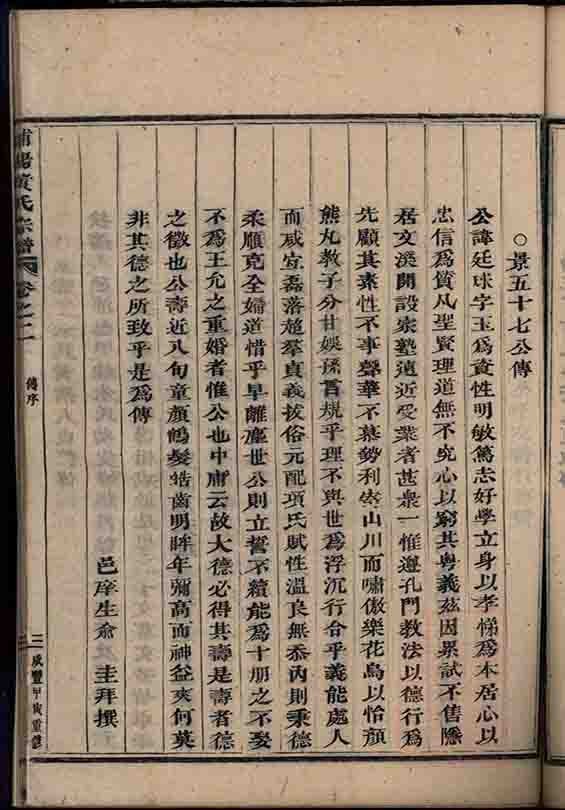 ○景五十七公傳
公諱廷球字玉為資性明敏篤志好學立身以孝悌為本居心以
忠信為質凡聖賢理道無不究心以窮其粵義茲因累試不售隱
居文溪開設家塾遠近受業者甚衆一惟遵孔門教法以德行為
先顧其素性不事聲華不慕勢利嵜山川而嘯傲樂花鳥以怡顏
熊丸教子分甘娛孫言規乎理不與世為浮沉行合乎義能處人
而咸宜磊落超羣貞義拔俗元配項氏賦性溫良無忝內則秉德
柔順克全婦道惜乎早離塵世公則立誓不續能為十朋之不娶
不為王允之重婚者惟公也中庸云故大德必得其壽是壽者德
之徵也公壽近八旬童顏鶴髮皓齒明眸年彌高而神益爽何莫
非其德之所致乎是為傳
邑庠生俞圭拜撰
浦陽黃氏宗譜
卷之二
傳序
三
咸豐甲寅重修